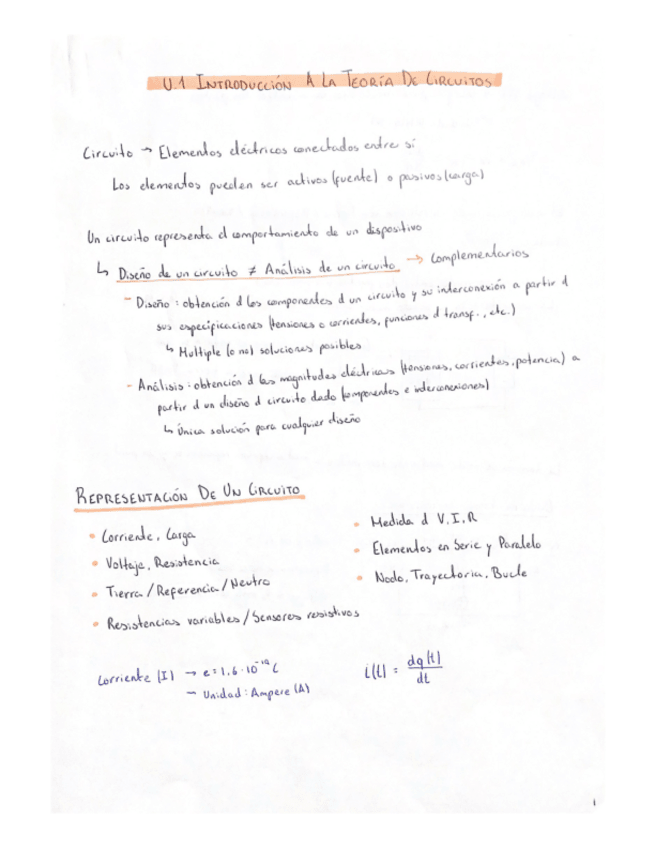 U.1 INTRODUCCIÓN A LA TEORÍA DE CIRCUITOS
Circuito → Elementos eléctricos conectados entre sí
Los elementos pueden ser activos (fuente) o pasivos (carga)
Un circuito representa el comportamiento de un dispositivo
↳ Diseño de un circuito ≠ Análisis de un circuito → Complementarios
- Diseño: obtención d los componentes d un circuito y su interconexión a partir d
sus especificaciones (tensiones o corrientes, funciones d transf., etc.)
↳ Multiple (o no) soluciones posibles
- Análisis: obtención d las magnitudes eléctricas (tensiones, corrientes, potencia) a
partir d un diseño d circuito dado (componentes e interconexiones)
↳ Única solución para cualquier diseño
REPRESENTACIÓN DE UN CIRCUITO
• Corriente, Carga
• Voltaje, Resistencia
• Tierra/Referencia/Neutro
• Resistencias variables/Sensores resistivos
• Medida d V, I, R
• Elementos en Serie y Paralelo
• Nodo, Trayectoria, Bucle
Corriente (I) → e = 1.6·10⁻¹⁹ C
→ Unidad: Ampere (A)
i(t) = dq(t)/dt
1